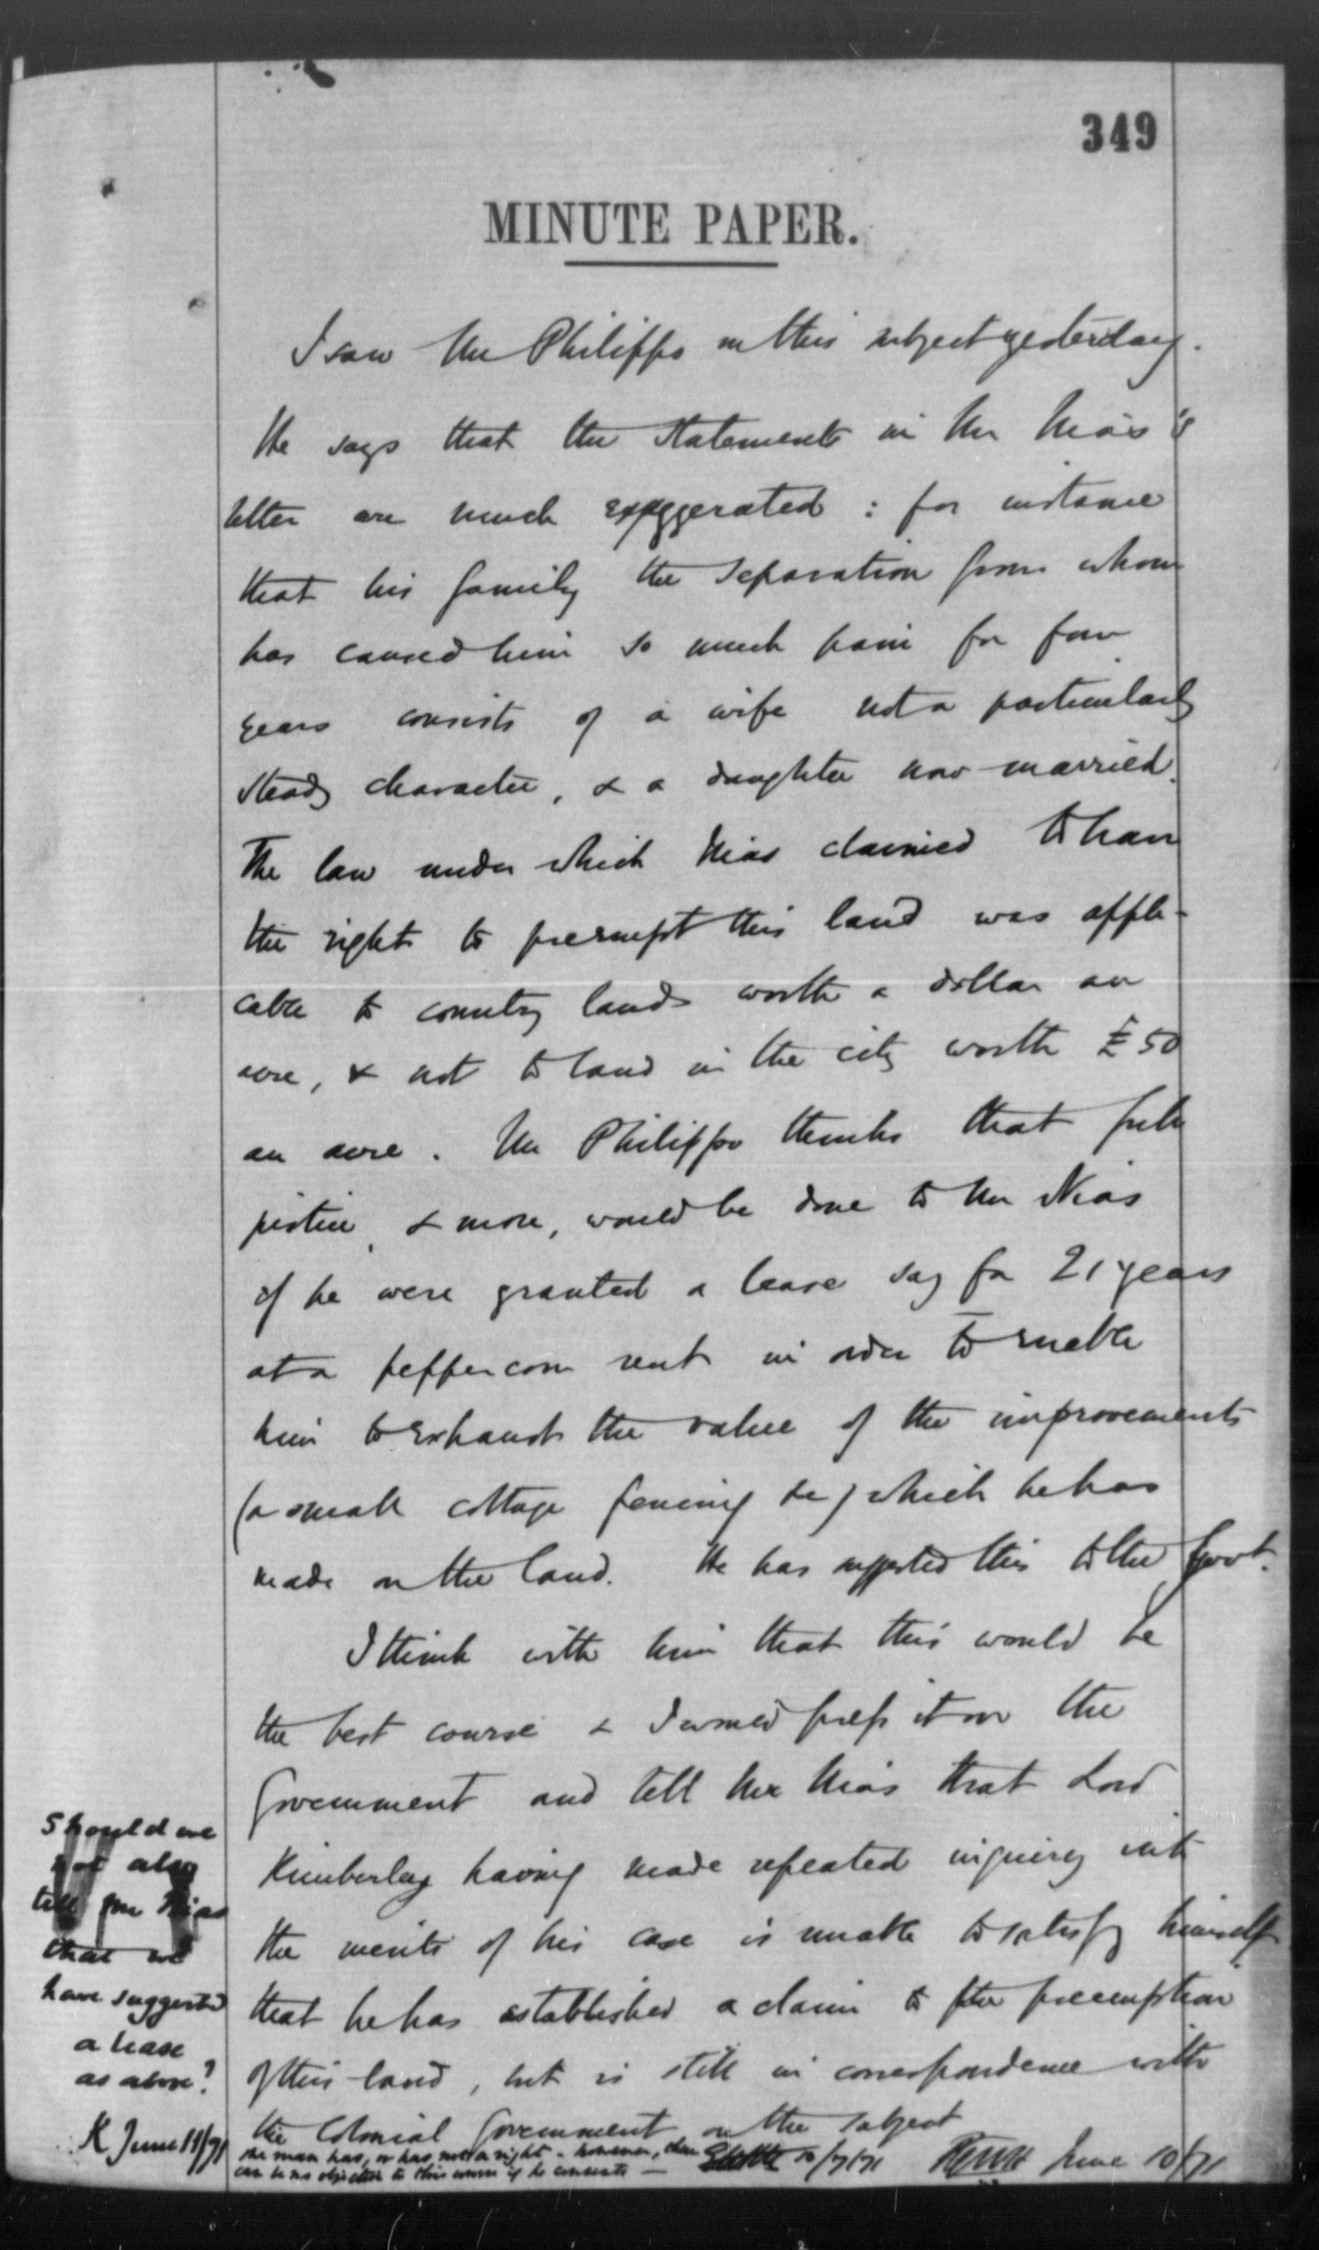 349
MINUTE PAPER.
I saw Mr Philippo on this subject yesterday.
He says that the statements in Mr Nias's
letter are much exaggerated : for instance
that his family the separation from whom
has caused him so much pain for four
years consists of a wife not a particularly
steady character, & a daughter now married.
The law under which Nias claimed to have
the right to preempt this land was appli-
cable to country lands worth a dollar an
acre, & not to land in the city worth £50
an acre. Mr Philippo thinks that full
justice, & more, would be done to Mr Nias
if he were granted a lease say for 21 years
at a peppercorn rent in order to enable
him to exhaust the value of the improvements
(a small cottage fencing &c) which he has
made on the land. He has suggested this to the Govt.
I think with him that this would be
the best course & I would press it on the
Government and tell Mr Nias that Lord
Kimberley having made repeated inquiry into
the merits of his case is unable to satisfy himself
that he has established a claim to the preemption
of this land, but is still in correspondence with
the Colonial Government on the subject
June 10/71
The man has, or has not a right - however, there
can be no objection to this course if he consents —
10/7/71
Should we
not also
tell Mr Nias
that we
have suggested
a lease
as above?
K June 11/71